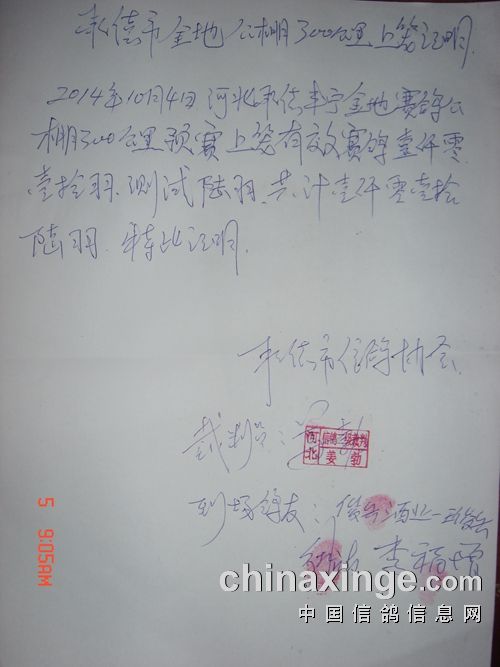 承德市金地公棚300公里上笼证明
2014年10月4日河北承德丰宁金地赛鸽公
棚300公里预赛上笼有效赛鸽壹仟零
壹拾羽.测试陆羽.共计壹仟零壹拾
陆羽.特此证明.
承德市信鸽协会.
裁判员:姜勃
河北 信鸽一级裁判 姜勃
到场鸽友:俊 酒业一
李福增
5 9:05AM
chinaxinge.com
中国信鸽信息网